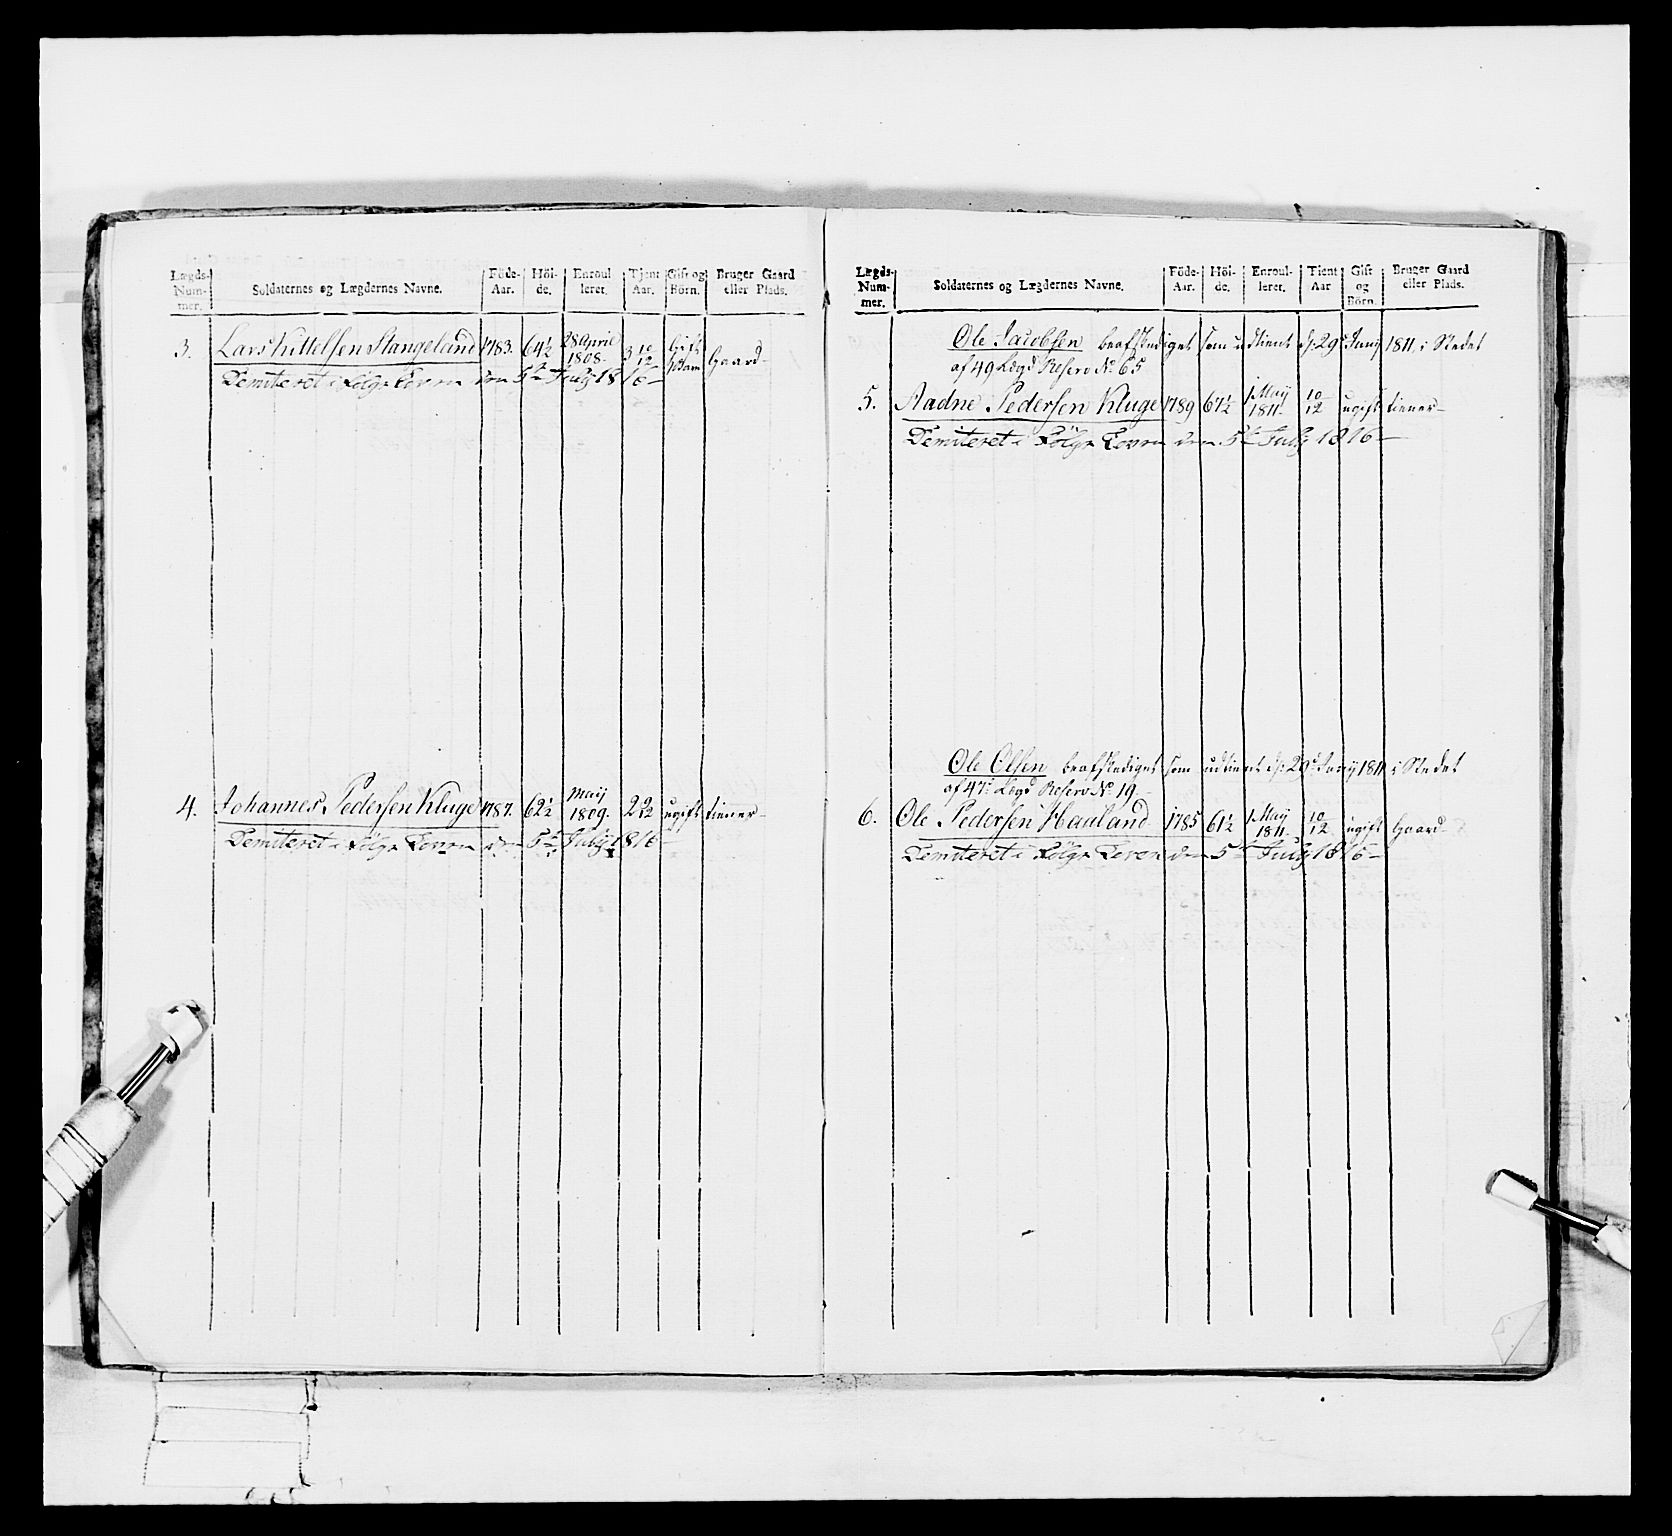 Lægds-Num-mer. Soldaternes og Lægdernes Navne. Föde-Aar. Höi-de. Enroul leret. Tjent Aar. Gift og Börn. Bruger Gaard eller Plads.
3. Lars Kittelsen Stangeland 1783. 64½ 28 Aprill 1808. 3 10/12 Gift 1 Barn Gaard
Demiteret i Følge Revue den 5te July 1816
4. Johannes Pedersen Kluge 1787. 62½ Maij 1809. 2 2/12 ugift tiener
Demiteret i Følge Revue den 5te July 1816
Lægds-Num-mer. Soldaternes og Lægdernes Navne. Föde-Aar. Höi-de. Enroul-leret. Tient Aar Gift og Börn. Bruger Gaard eller Plads.
Ole Jacobsen beafskediget som udtient d: 29de Junij 1811, i Stedet
af 49 Lægd Reserv No 65
5. Aadne Pedersen Kluge 1789 67½ 1 Maij 1811 10/12 ugift tiener
Demiteret i Følge Revue den 5te July 1816
Ole Olsen beafskediget som udtient d: 29de Junij 1811 i Stedet
af 47de Lægd Reserv No 19
6. Ole Pedersen Haaland 1785 61½ 1 Maij 1811 10/12 ugift Gaard
Demiteret i Følge Revue den 5te July 1816